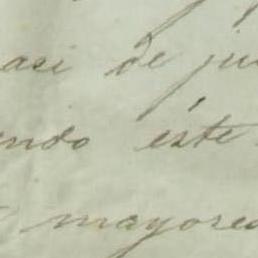 aci de ju
endo éste
mayores